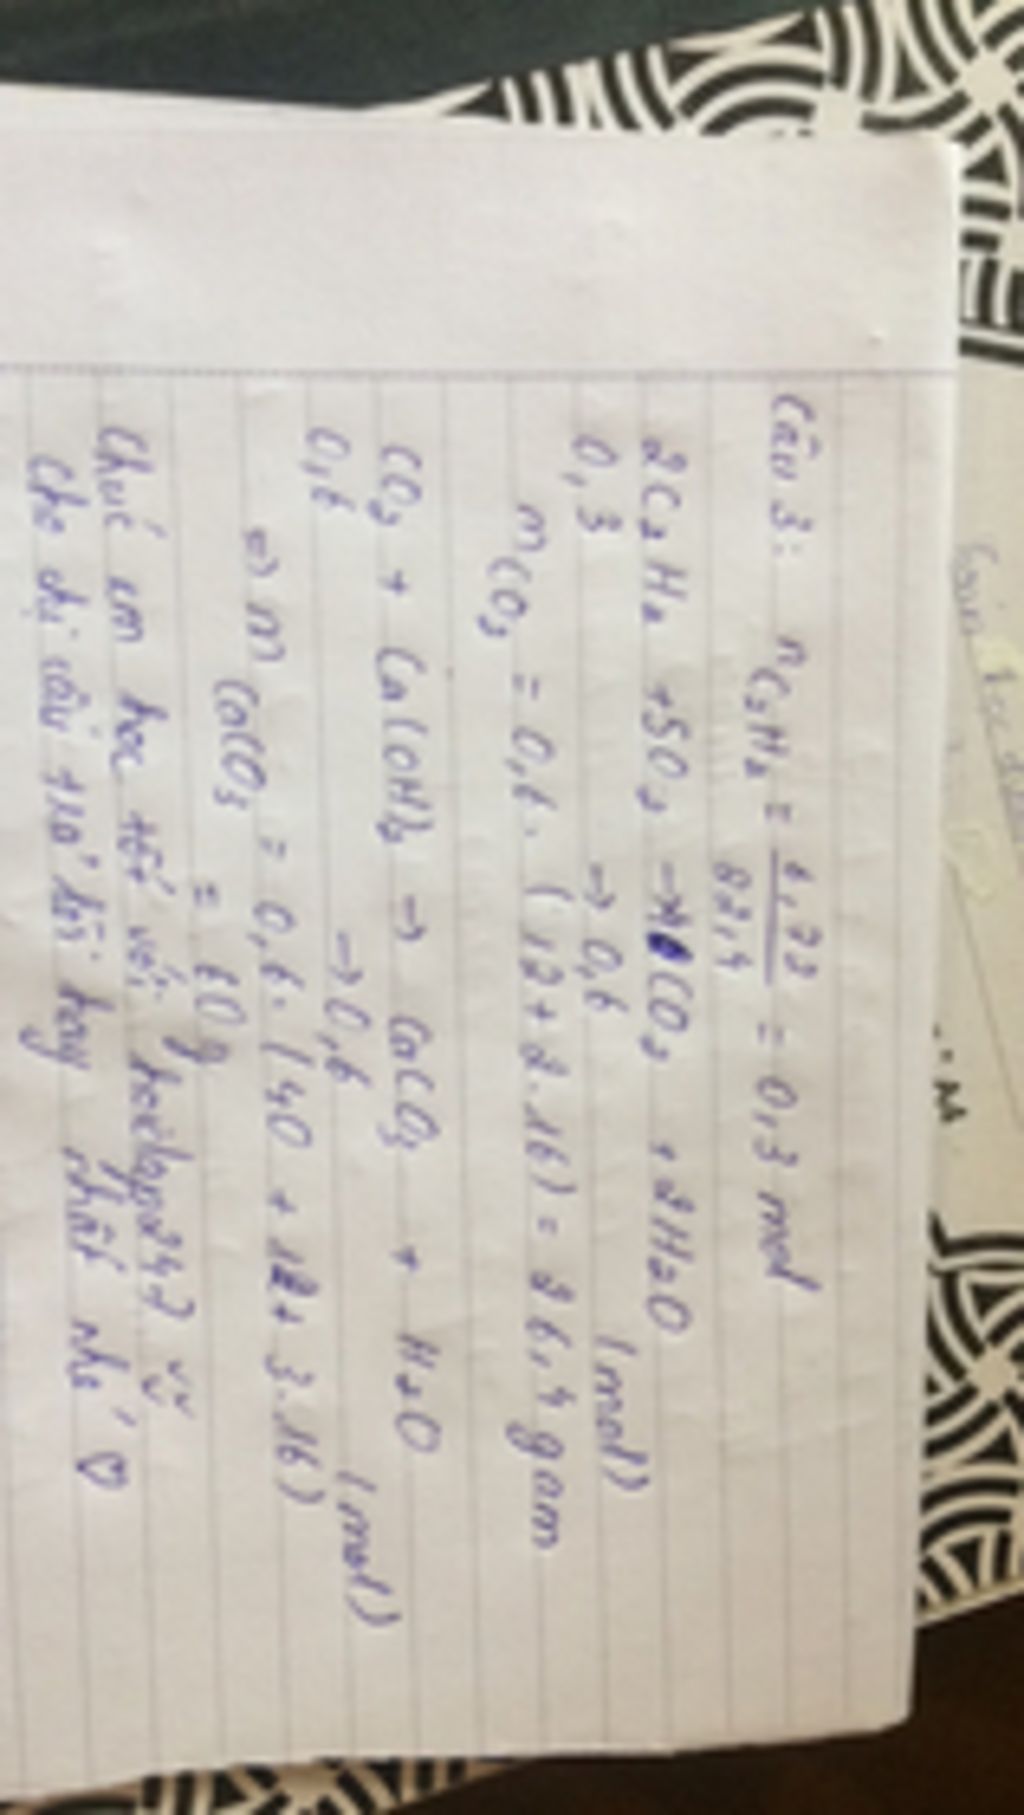 Câu 3: nC₂H₂ = 6,72 / 22,4 = 0,3 mol
2C₂H₂ + 5O₂ → 4CO₂ + 2H₂O
0,3 → 0,6 (mol)
mCO₂ = 0,6. (12 + 2.16) = 26,4 gam
CO₂ + Ca(OH)₂ → CaCO₃ + H₂O
0,6 → 0,6 (mol)
=> mCaCO₃ = 0,6. (40 + 12 + 3.16)
= 60 g
Chúc em học tốt với hoidap247 ^^
Cho chị câu trả lời hay nhất nhé ♡